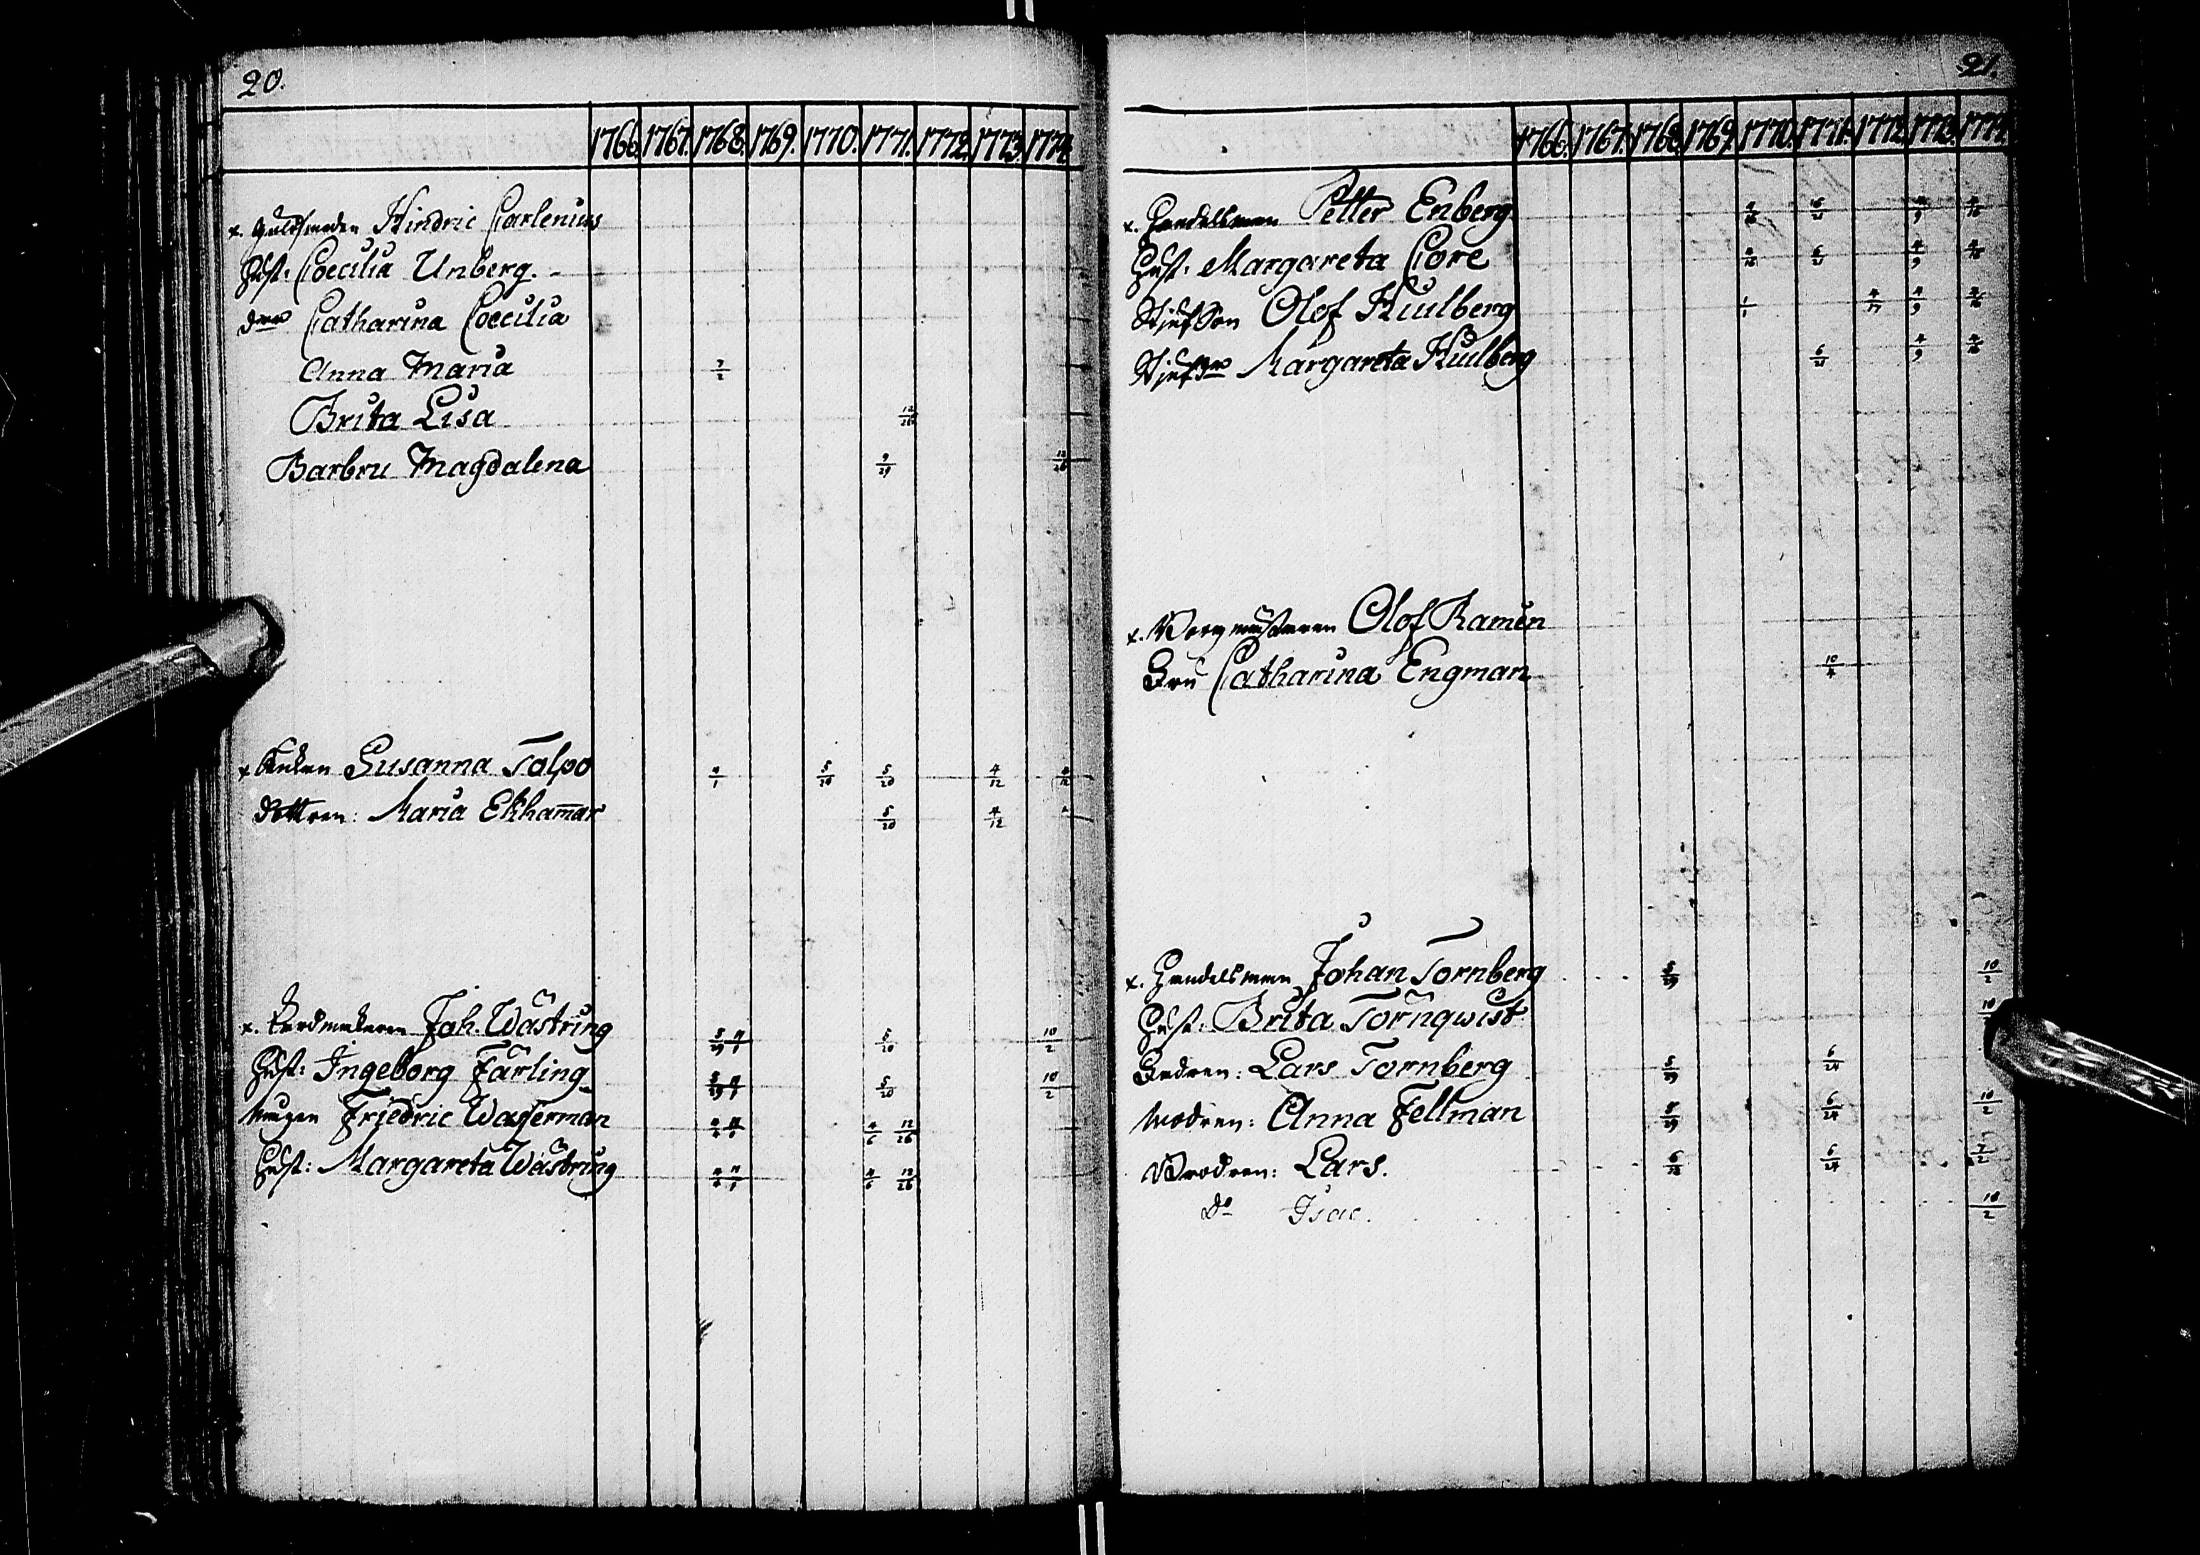 20.
1766. 1767. 1768. 1769. 1770. 1771. 1772. 1773. 1774.
x. Guldsmeden Hindric Carlenius
Hust: Coecilia Unberg.
dr Catharina Coecilia
Anna Maria 7/2
Brita Lisa 12/26
Barbru Magdalena 9/29 12/26
x Enkan Susanna Talpo 4/1 5/20 5/20 4/12 4/12
dottren: Maria Ekhamar 5/20 4/12
x. Joh. Wästring 5/29 5/20 10/2
Hust: Ingeborg Färling 5/29 5/20 10/2
Mågen Friedric Waserman 4/6 12/26
Hust: Margareta Wästring 4/6 12/26
21.
1766. 1767. 1768. 1769. 1770. 1771. 1772. 1773. 1774.
x. Handelsman Petter Enberg 4/16 6/21 4/9 4/16
Hust: Margareta Core 4/16 6/21 4/9 4/16
Stjufson Olof Huulberg 1/1 4/17 4/9 4/16
Stjufdr Margareta Huulberg 6/21 4/9 4/16
x. Borgmästaren Olof Ramen
Fru Catharina Engman 10/4
x. Handelsman Johan Tornberg 5/29 10/2
Hust: Brita Tornqwist 10
Fadren: Lars Tornberg 5/29 6/24
Modren: Anna Fellman 5/29 6/24 10/2
Brodren: Lars. 6/24 7/2
Do Isac. 10/2